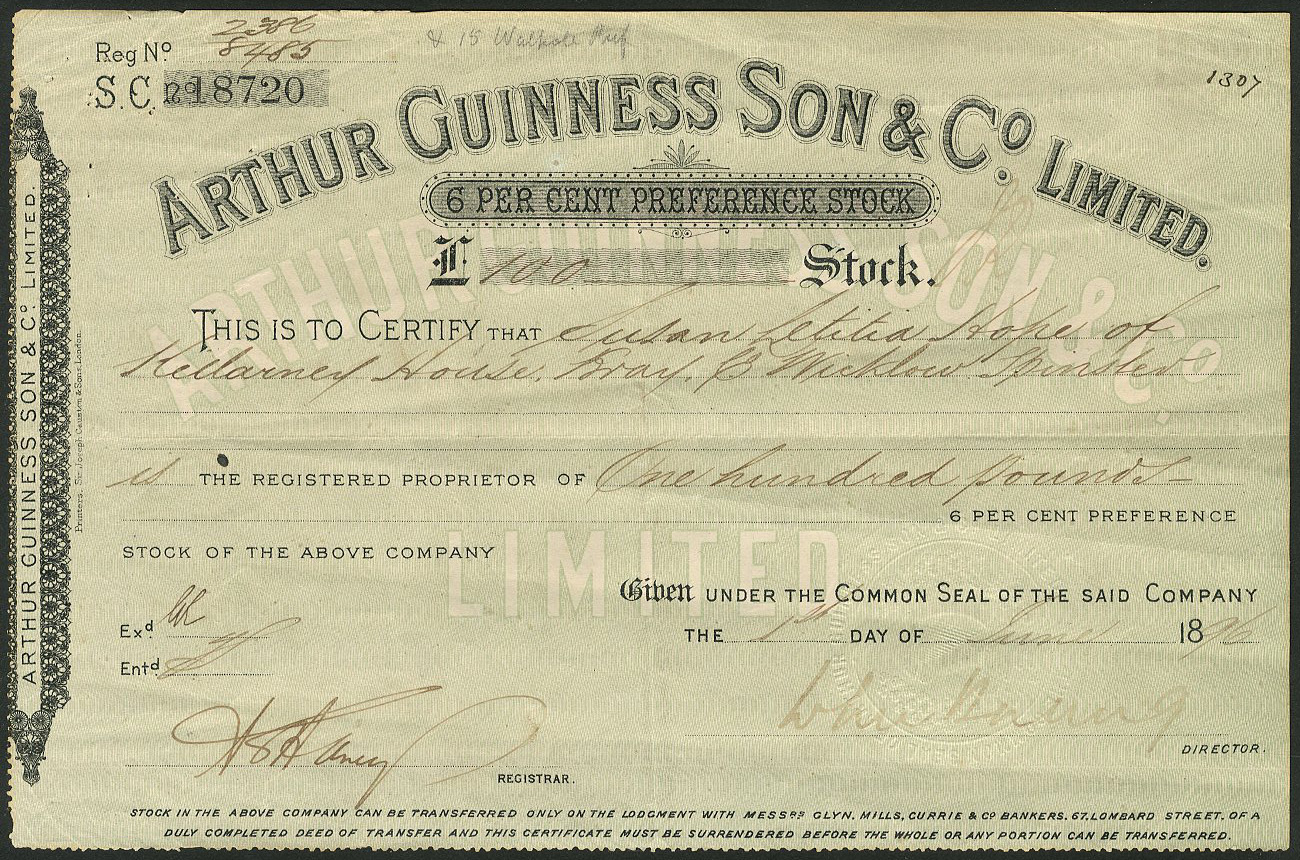 2386
Reg Nº 8485
& 15 Walpole Pref
S.C. nº 18720
1307
ARTHUR GUINNESS SON & Cº LIMITED.
6 PER CENT PREFERENCE STOCK
£ 100 Stock.
THIS IS TO CERTIFY THAT Susan Letitia Hope of
Killarney House, Bray, Co Wicklow Spinster
is THE REGISTERED PROPRIETOR OF One hundred pounds—
6 PER CENT PREFERENCE
STOCK OF THE ABOVE COMPANY
Given UNDER THE COMMON SEAL OF THE SAID COMPANY
THE 1st DAY OF June 1896
Exd.
Entd.
DIRECTOR.
REGISTRAR.
STOCK IN THE ABOVE COMPANY CAN BE TRANSFERRED ONLY ON THE LODGMENT WITH MESSRS GLYN, MILLS, CURRIE & Cº BANKERS, 67, LOMBARD STREET, OF A
DULY COMPLETED DEED OF TRANSFER AND THIS CERTIFICATE MUST BE SURRENDERED BEFORE THE WHOLE OR ANY PORTION CAN BE TRANSFERRED.
ARTHUR GUINNESS SON & Cº LIMITED.
Printers, Sir Joseph Causton & Sons, London.
ARTHUR GUINNESS SON & Cº
LIMITED